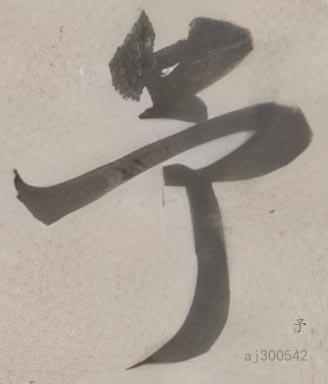 予
予
aj300542